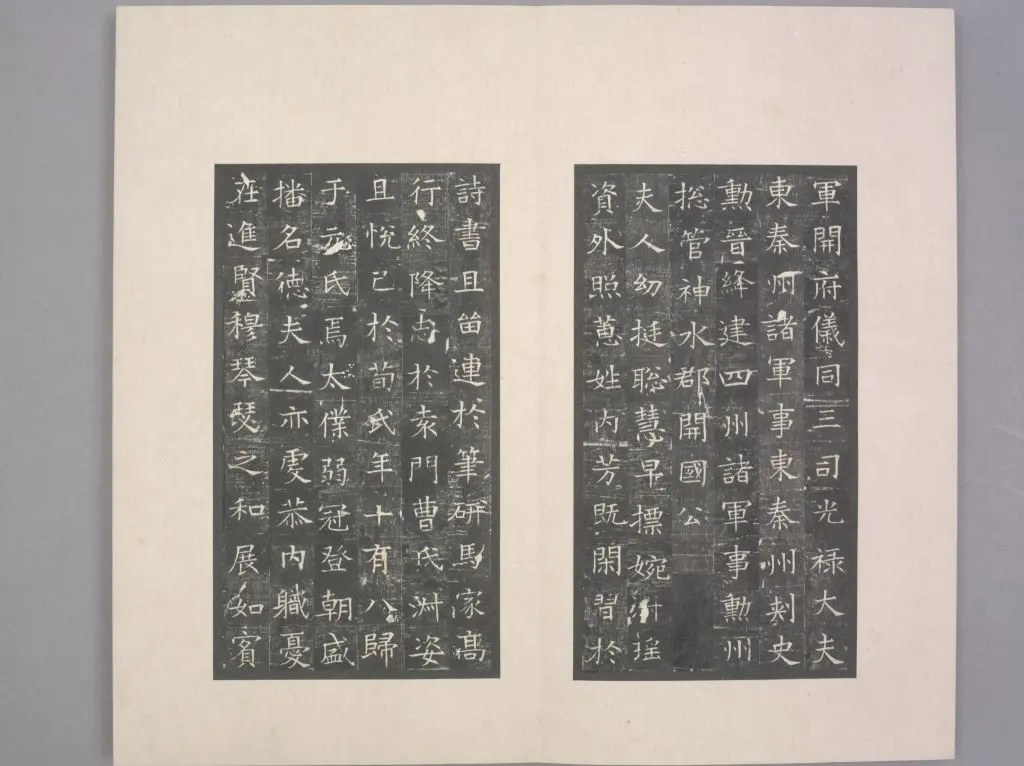 軍開府儀同三司光禄大夫
東秦州諸軍事東秦州刺史
勲晉絳建四州諸軍事勲州
捴管神水郡開國公
夫人幼挺聡慧早摽婉淑瑶
資外照蕙姓内芳既閑習於
詩書且留連於筆硏馬家髙
行終降志於袁門曹氏淑姿
且悅己於荀氏年十有八歸
于元氏焉太僕弱冠登朝盛
播名徳夫人亦虔恭内職憂
在進賢穆琴瑟之和展如賓